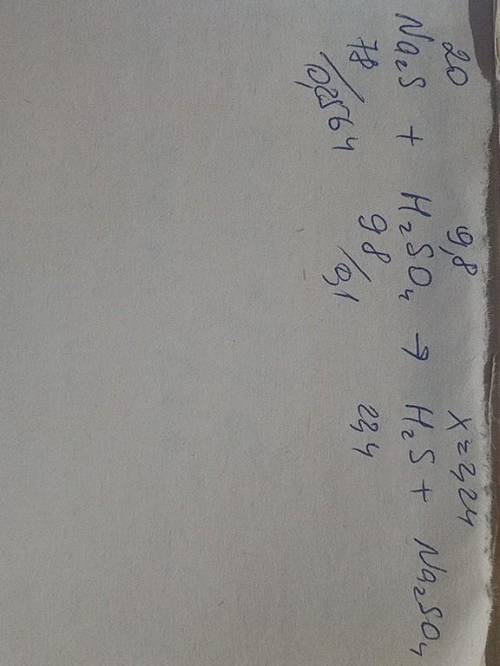 20 9,8 x=2,24
Na₂S + H₂SO₄ → H₂S + Na₂SO₄
78 98 22,4
/0,2564 /0,1